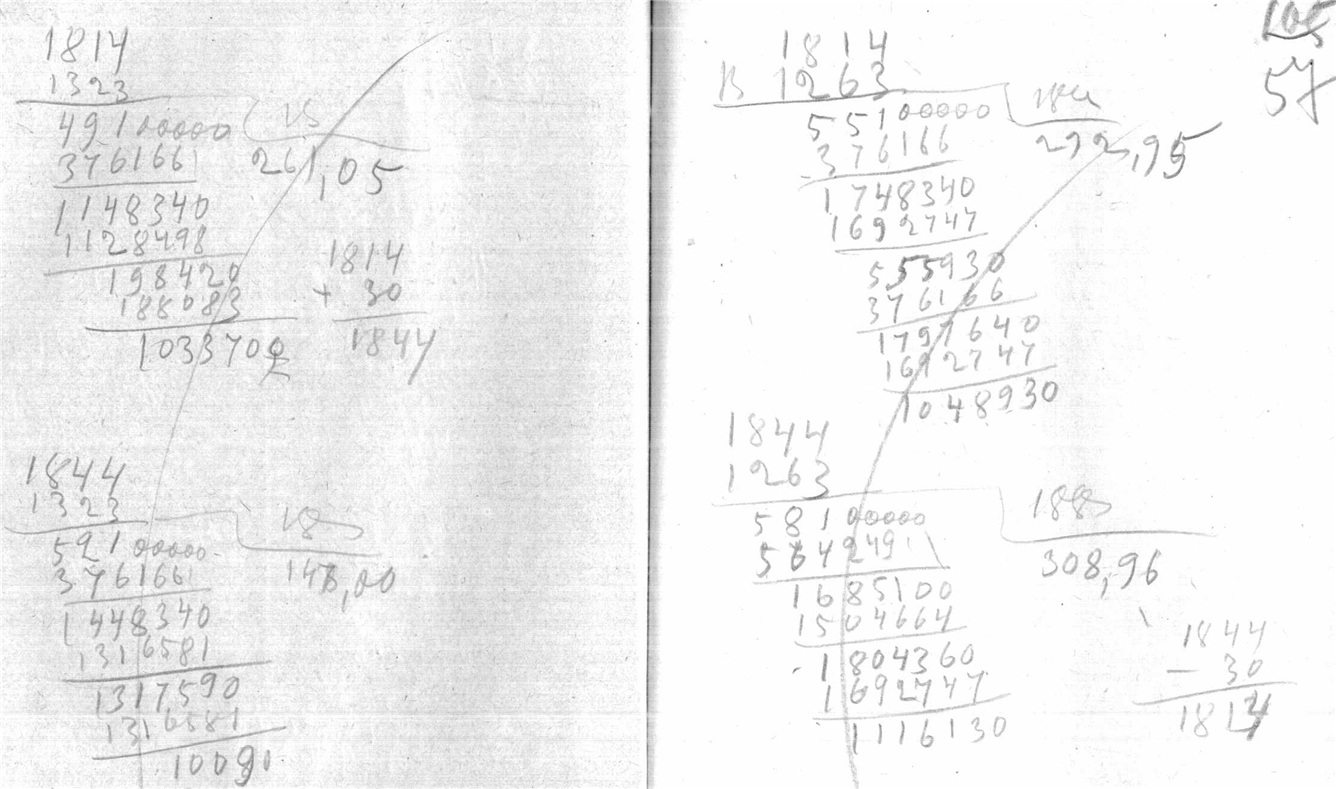 1814
1323
49100000
3761661
261,05
1148340
1128498
198420
188083
1033700
1814
+ 30
1844
1844
1323
59100000
3761661
1448340
1316581
1317590
1316581
10090
105
57
1814
В 1263
55100000
376166
292,95
1748340
1692747
555930
376166
1797640
1692747
1048930
1844
1263
58100000
1885
5642491
308,96
1685100
1504664
1804360
1692747
1116130
1844
- 30
1814